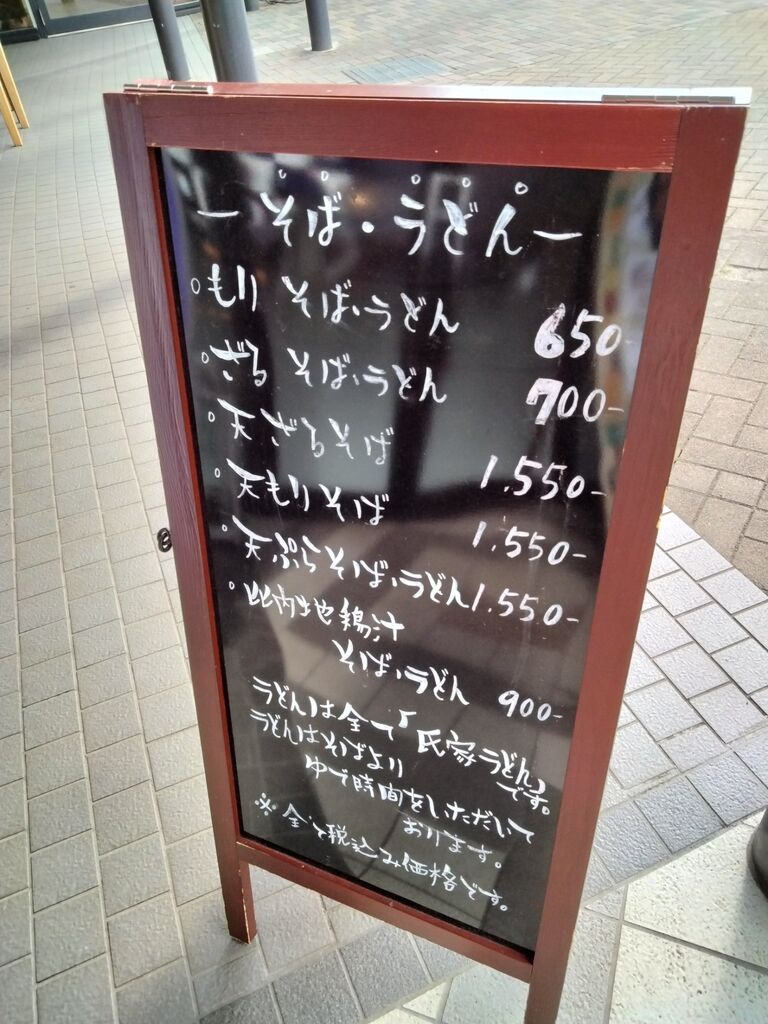 －そば・うどん－
○もり そば・うどん 650
○ざる そば・うどん 700-
○天ざるそば 1.550-
○天もりそば 1.550-
○天ぷらそば・うどん 1.550-
○比内地鶏汁
そば・うどん 900-
うどんは全て「氏家うどん」です。
うどんはそばより
ゆで時間をいただいて
おります。
※全て税込み価格です。